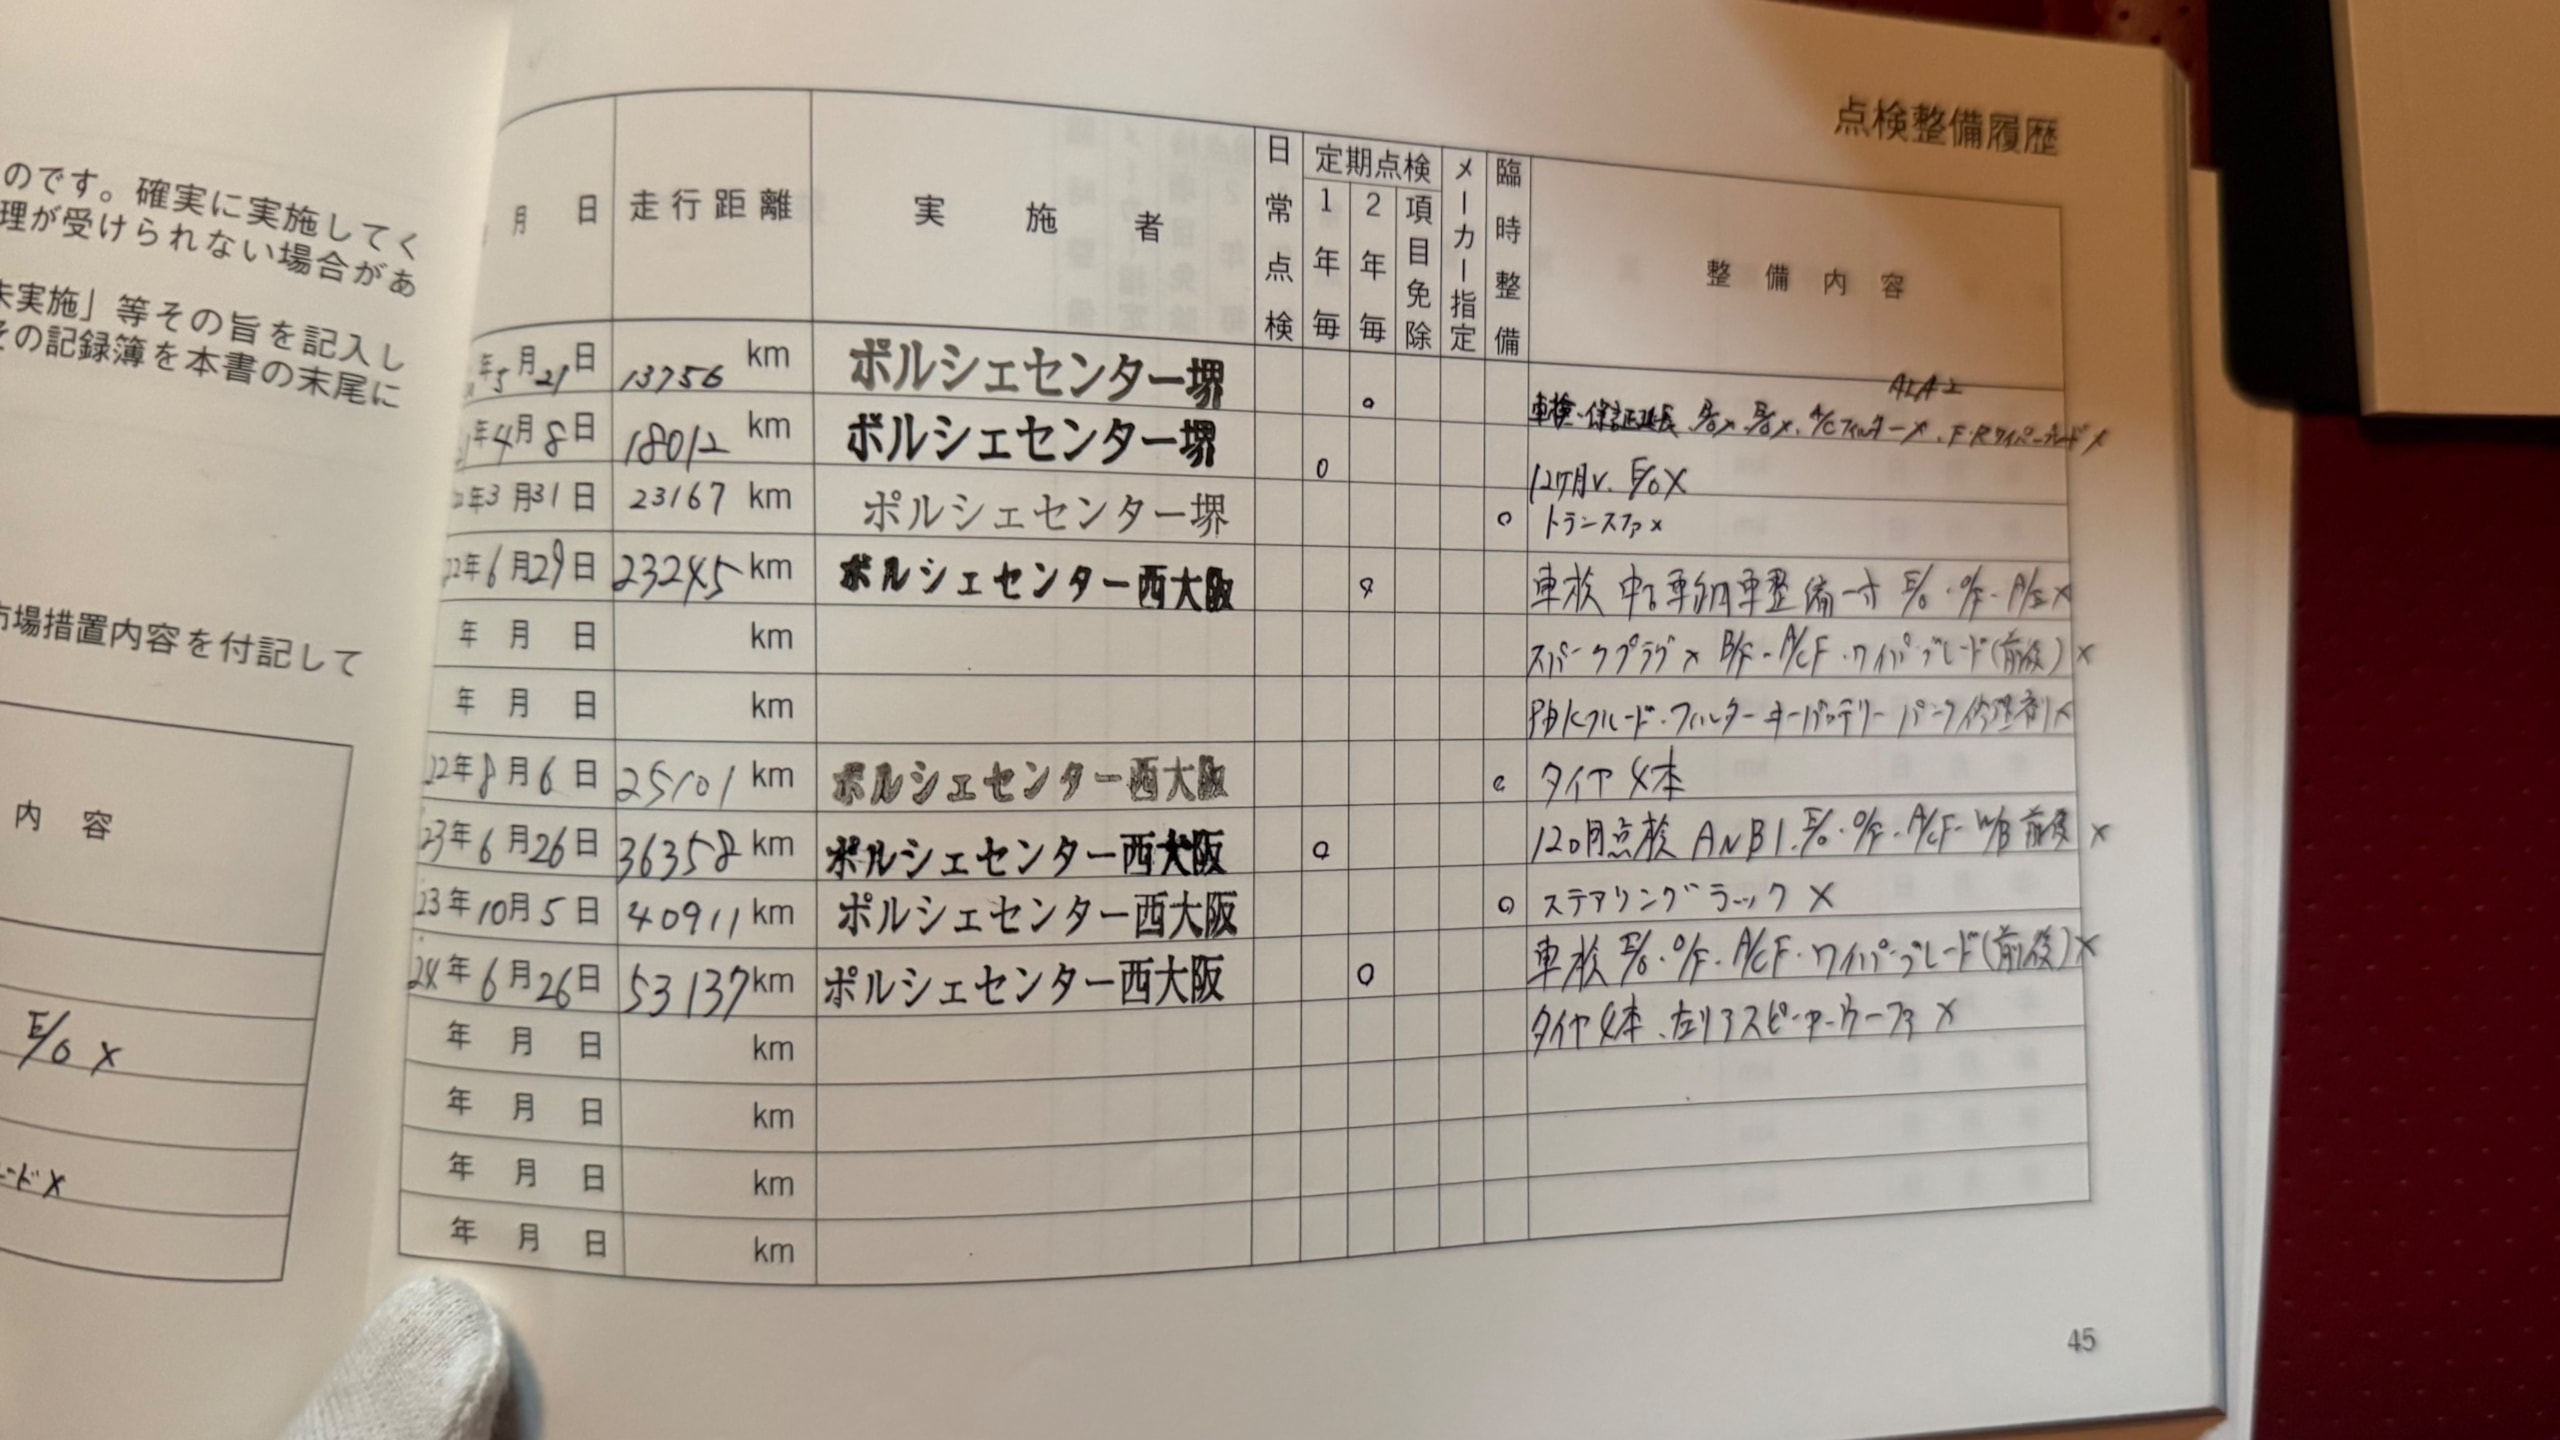 のです。確実に実施してく
理が受けられない場合があ
未実施」等その旨を記入し
その記録簿を本書の末尾に
市場措置内容を付記して
内 容
E/O X
ードX
点検整備履歴
月 日 走行距離 実施者 日常点検 定期点検 1年毎 2年毎 項目免除 メーカー指定 臨時整備 整備内容
年5月21日 13756 km ポルシェセンター堺 o ALA2
車検・保証延長 A/Cフィルター X F・Rワイパーブレード X
年4月8日 18012 km ポルシェセンター堺 o 12ヶ月 E/O X
年3月31日 23167 km ポルシェセンター堺 o トランスファ x
22年6月29日 23245 km ポルシェセンター西大阪 o 車検 中古車納車整備 E/O・O/F・A/E X
年 月 日 km スパークプラグ x B/F・A/CF・ワイパーブレード(前後) x
年 月 日 km PDKフルード・フィルター キーバッテリー パンク修理剤 x
22年8月6日 25101 km ポルシェセンター西大阪 o タイヤ4本
23年6月26日 36358 km ポルシェセンター西大阪 o 12ヶ月点検 ANB1. E/O・O/F・A/CF・W/B 前後 x
23年10月5日 40911 km ポルシェセンター西大阪 o ステアリングラック X
24年6月26日 53137 km ポルシェセンター西大阪 o 車検 E/O・O/F・A/CF・ワイパーブレード(前後) x
年 月 日 km タイヤ4本、左リアスピーカーウーファ X
年 月 日 km
年 月 日 km
年 月 日 km
45